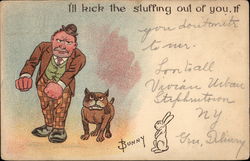 I'll kick the stuffing out of you, If
you don't write
to me.
Vivian Urban
Stephentown
NY
BUNNY